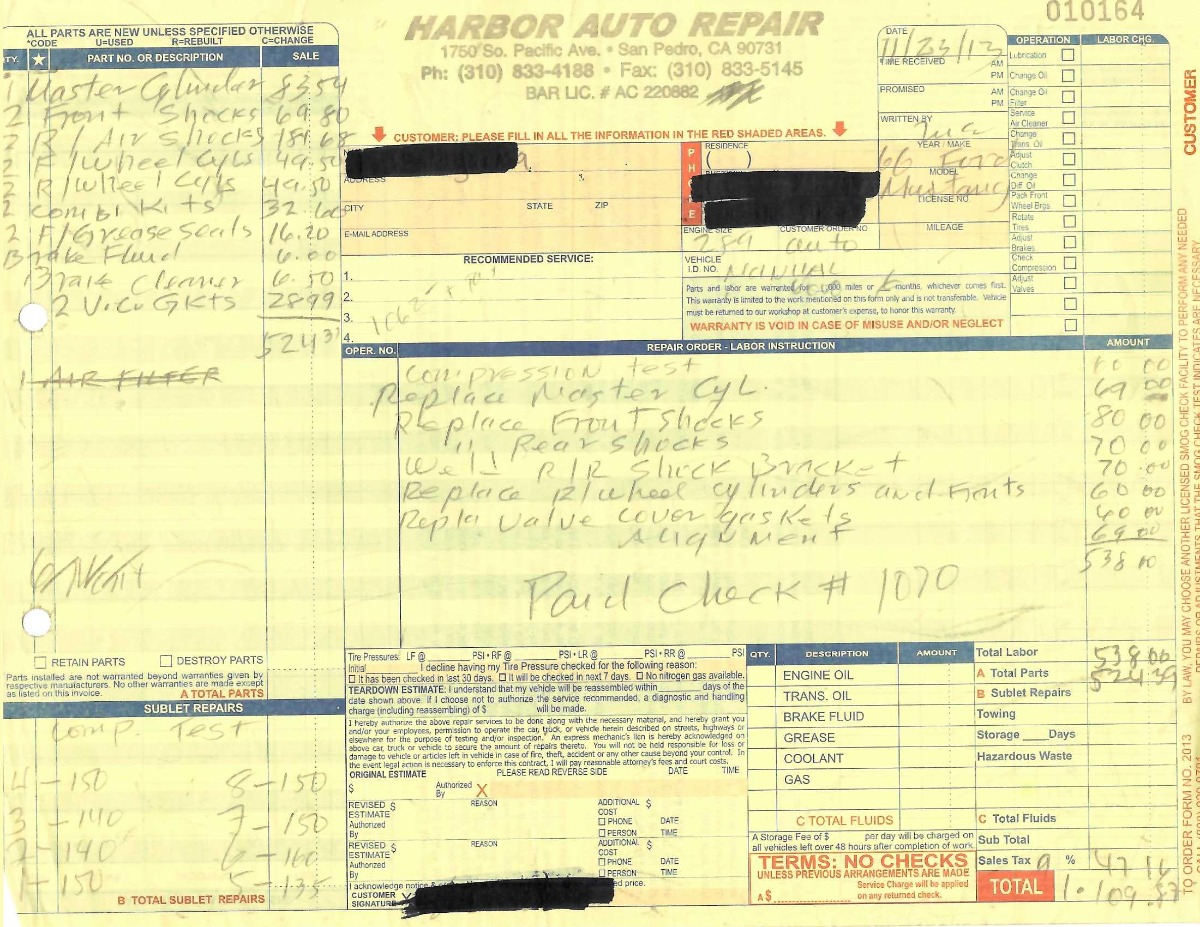 HARBOR AUTO REPAIR
1750 So. Pacific Ave. • San Pedro, CA 90731
Ph: (310) 833-4188 • Fax: (310) 833-5145
BAR LIC. # AC 220882
010164
ALL PARTS ARE NEW UNLESS SPECIFIED OTHERWISE
*CODE U=USED R=REBUILT C=CHANGE
QTY. ★ PART NO. OR DESCRIPTION SALE
1 Master Cylinder 83.54
2 Front Shocks 69.80
2 R/Air Shocks 181.68
2 F/Wheel Cyls 49.50
2 R/Wheel Cyls 49.50
2 Combi Kits 32.60
2 F/Grease Seals 16.20
Brake Fluid 6.00
Brake Cleaner 6.50
2 V.Co GKTS 28.99
524.31
1 AIR FILTER
RETAIN PARTS DESTROY PARTS
Parts installed are not warranted beyond warranties given by
respective manufacturers. No other warranties are made except
as listed on this invoice.
A TOTAL PARTS
SUBLET REPAIRS
Comp. Test
4-150 8-150
3-140 7-150
2-140 6-160
1-150 5-135
B TOTAL SUBLET REPAIRS
CUSTOMER: PLEASE FILL IN ALL THE INFORMATION IN THE RED SHADED AREAS.
ADDRESS
CITY STATE ZIP
E-MAIL ADDRESS
RESIDENCE
( )
DATE 11/23/13
TIME RECEIVED AM
PM
PROMISED AM
PM
WRITTEN BY
YEAR / MAKE
66 Ford
MODEL
Mustang
LICENSE NO.
MILEAGE
ENGINE SIZE
289
CUSTOMER ORDER NO
auto
VEHICLE
I.D. NO.
MANUAL
RECOMMENDED SERVICE:
1.
2.
3.
4.
Parts and labor are warranted for ,000 miles or months, whichever comes first.
This warranty is limited to the work mentioned on this form only and is not transferable. Vehicle
must be returned to our workshop at customer's expense, to honor this warranty.
WARRANTY IS VOID IN CASE OF MISUSE AND/OR NEGLECT
OPERATION LABOR CHG.
Lubrication
Change Oil
Change Oil
Filter
Service
Air Cleaner
Change
Trans. Oil
Adjust
Clutch
Change
Diff. Oil
Pack Front
Wheel Brgs.
Rotate
Tires
Adjust
Brakes
Check
Compression
Adjust
Valves
OPER. NO. REPAIR ORDER - LABOR INSTRUCTION AMOUNT
Compression Test
Replace Master Cyl. 69 00
Replace Front Shocks 80 00
" Rear Shocks 70 00
Weld R/R Shock Bracket 70 00
Replace R/wheel cylinders and Fronts 60 00
Repla Valve cover gaskets
Alignment 69 00
538 00
Paid Check # 1070
Tire Pressures: LF @ PSI • RF @ PSI • LR @ PSI • RR @ PSI
Initial I decline having my Tire Pressure checked for the following reason:
It has been checked in last 30 days. It will be checked in next 7 days. No nitrogen gas available.
TEARDOWN ESTIMATE: I understand that my vehicle will be reassembled within days of the
date shown above. if I choose not to authorize the service recommended, a diagnostic and handling
charge (including reassembling) of $ will be made.
I hereby authorize the above repair services to be done along with the necessary material, and hereby grant you
and/or your employees, permission to operate the car, truck, or vehicle herein described on streets, highways or
elsewhere for the purpose of testing and/or inspection. An express mechanic's lien is hereby acknowledged on
above car, truck or vehicle to secure the amount of repairs thereto. You will not be held responsible for loss or
damage to vehicle or articles left in vehicle in case of fire, theft, accident or any other cause beyond your control. In
the event legal action is necessary to enforce this contract, I will pay reasonable attorney's fees and court costs.
ORIGINAL ESTIMATE PLEASE READ REVERSE SIDE DATE TIME
$ Authorized
By X
REVISED $ REASON ADDITIONAL $
ESTIMATE COST
Authorized PHONE DATE
By PERSON TIME
REVISED $ REASON ADDITIONAL $
ESTIMATE COST
Authorized PHONE DATE
By PERSON TIME
I acknowledge notice & price.
CUSTOMER
SIGNATURE X
QTY. DESCRIPTION AMOUNT
ENGINE OIL
TRANS. OIL
BRAKE FLUID
GREASE
COOLANT
GAS
C TOTAL FLUIDS
A Storage Fee of $ per day will be charged on
all vehicles left over 48 hours after completion of work.
TERMS: NO CHECKS
UNLESS PREVIOUS ARRANGEMENTS ARE MADE
Service Charge will be applied
A $ on any returned check.
Total Labor 538 00
A Total Parts
B Sublet Repairs
Towing
Storage Days
Hazardous Waste
C Total Fluids
Sub Total
Sales Tax 9 % 47.16
TOTAL 1.109.
CUSTOMER
BY LAW, YOU MAY CHOOSE ANOTHER LICENSED SMOG CHECK FACILITY TO PERFORM ANY NEEDED
REPAIRS OR ADJUSTMENTS THAT THE SMOG CHECK TEST INDICATES ARE NECESSARY.
TO ORDER FORM NO. 2013